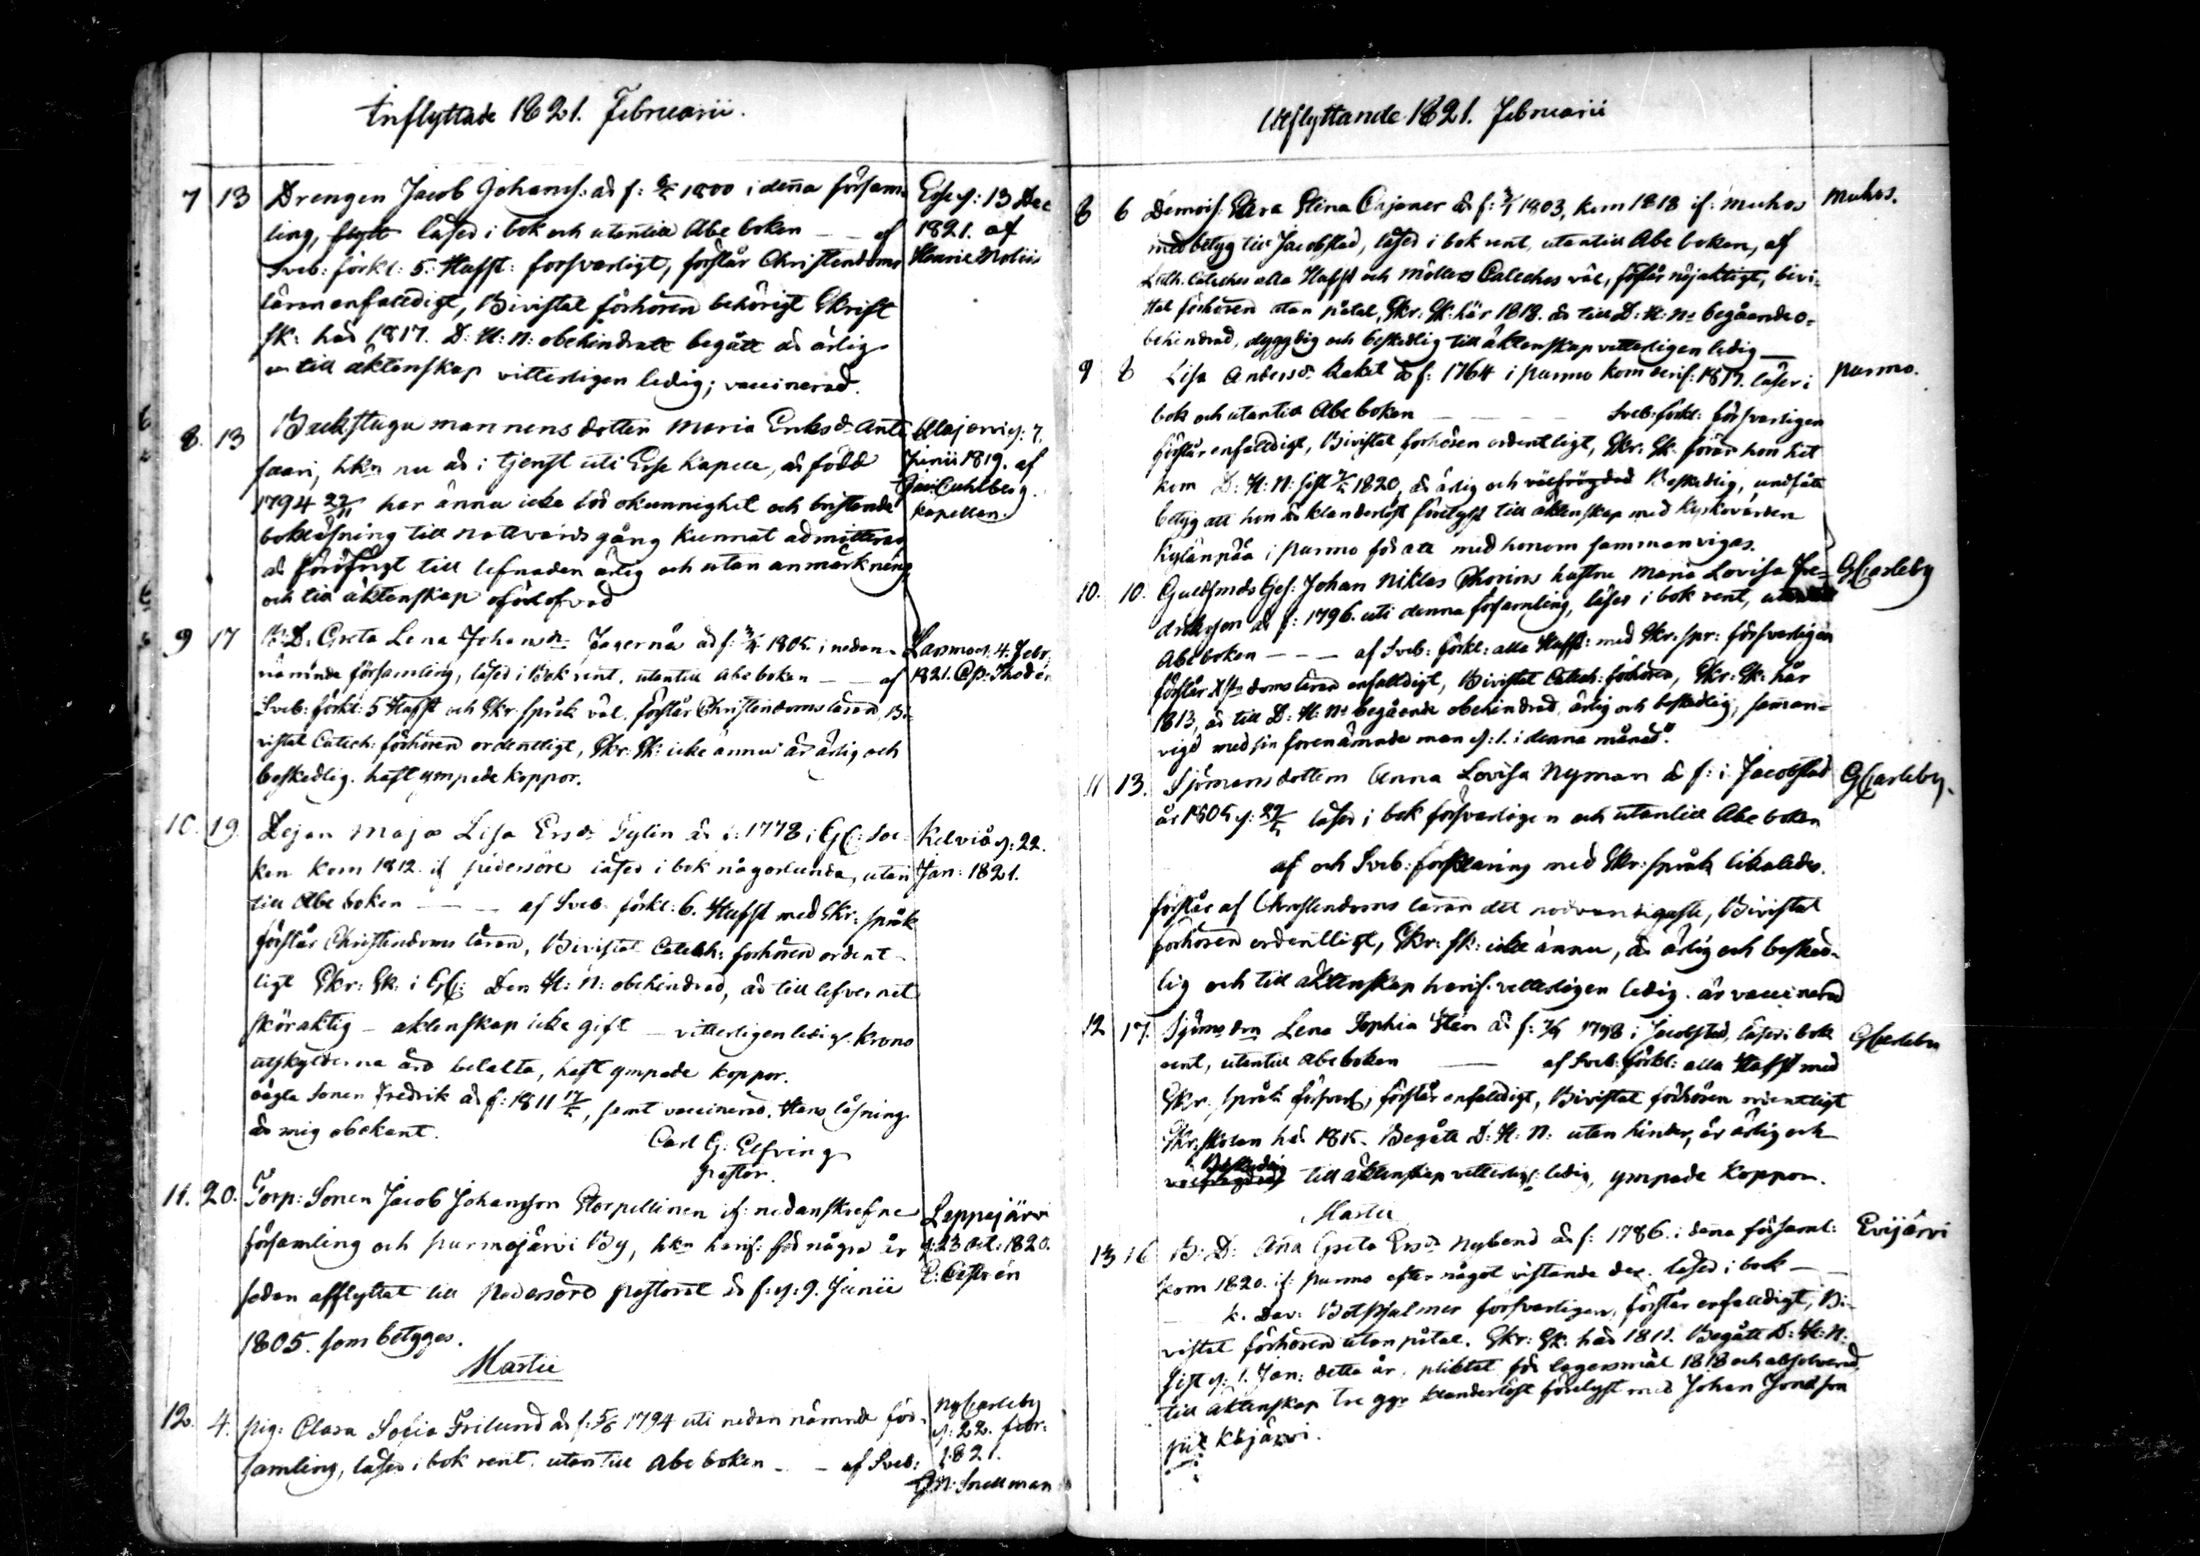 Inflyttade 1821. Februarii.
7 13 Drengen Jacob Johanss: är f: 1800 i denna försam- Esse d: 13 Dec
ling, flytt läser i bok och utantill Abc boken — — af 1821. af
Sveb: förkl: 5. Hufst: försvarligt, förstår Christendoms Henric Molin
läran enfaldigt, Bivistat förhören behörigt Skrift
sk: här 1817. D: H: N: obehindrat begått är ärlig
till äktenskap vitterligen ledig; vaccinerad.
8. 13 Backstugu mannens dotter Maria Eriksdr Anti Alajervi d: 7.
saari, hkn nu är i tjenst uti Esse Kapell, är född Junii 1819. af
1794 22/11 har ännu icke för okunnighet och bristande Jac: Cuhlberg
bokläsning till nattvards gång kunnat admitteras Kapellan.
är föröfrigt till lefnaden ärlig och utan anmärkning
och till äktenskap oförlofvad
9 17 B: D. Greta Lena Johansdr Fagernäs är f: 1805. i nedan- Larsmo d. 4. Febr:
nämnde församling, läser i Bok rent, utantill Abc boken — — af 1821. C. P: Thodén
Sveb: förkl: 5 Hufst och Skr. språk väl. förstår Christendoms läran, Bi-
vistat Catech: förhören ordentligt, Skr: Sk: icke ännu är ärlig och
beskedlig. haft ympade koppor.
10. 19. Lejon Maja Lisa Ersdr Tylin är f: 1778 i GC: soc- Kelviå d: 22.
ken kom 1812. if Pedersöre läser i bok någorlunda, utan Jan: 1821.
till Abc boken — — — af Sveb: förkl: 6. Hufst med Skr: språk
förstår Christendoms läran, Bivistat Catech: förhören ordent-
ligt Skr: Sk: i GC: Den H: N: obehindrad, är till lefvernet
sköraktig — äktenskap icke gift — vitterligen ledig. Krono
utskylderna äro betalta, haft ympade koppor.
oägta Sonen Fredrik är f: 1811 17/5, samt vaccinerad. Hans läsning
är mig obekant.
Carl G: Elfving
Pastor.
11. 20. Torp: Sonen Jacob Johansson Storpellinen if: nedanskrefne Lappajärvi
församling och Purmojärvi By, hkn härif: för några år d: 23 Oct: 1820.
sedan afflyttat till Pedersöre Pastorat är f: d: 9. Junii E: Castrén
1805. som betyges.
Martii
12. 4. Pig: Clara Sofia Frilund är f: 5/8 1794 uti nedan nämnde för- NyCarleby
samling, läser i bok rent, utantill Abc boken — — af Sveb: d: 22. febr:
1821.
J N: Snellman
Utflyttande 1821. Februarii
8 6 Demois: Clara Stina Cajaner är f: 1803, kom 1818 if: Muhos Muhos.
med betyg till Jacobstad, läser i bok rent, utantill Abc boken, af
Luth. Catechos alla Hufst och Möllers Catechos väl, förstår nöjaktigt, bivi-
stat förhören utan påtal, Skr: Sk: här 1818. är till D: H: Ns begående o-
behindrad, dygdig och beskedlig till äktenskap vitterligen ledig —
9 8 Lisa Andersdr Rakel är f: 1764 i Purmo kom derif: 1817. läser i Purmo.
bok och utantill Abc boken — — — Sveb: förkl: försvarligen
förstår enfaldigt, Bivistat förhören ordentligt, Skr: Sk. förän hon hit
kom D: H: N: sist 1820, är ärlig och välfrägdad Beskedlig, undfått
betyg att hon är klanderlöst förelyst till äktenskap med Kyrkovärden
Kylänpää i Purmo för att med honom sammanvigas.
10. 10. Guldsmds Ges: Johan Niklas Thorins hustru Maria Lovisa Fre- GCarleby
driksson är f: 1796. uti denna församling, läser i bok rent, utantill
Abc boken — — — af Sveb: förkl: alla Hufst: med Skr: spr: försvarligen
förstår Xstndoms läran enfaldigt, Bivistat Catech: förhören, Skr: Sk: här
1813, är till D: H: Ns begående obehindrad, ärlig och beskedlig, samman-
vigd med sin förenämnde man d: 1. i denna månad.
11 13. Sjömans dottern Anna Lovisa Nyman är f: i Jacobstad GCarleby.
år 1805 d: 27/5 läser i bok försvarligen och utantill Abc boken
af och Sveb: förklaring med Skr: språk likaledes.
förstår af Christendoms läran det nödvändigaste, Bivistat
förhören ordentligt, Skr: sk: icke ännu, är ärlig och besked-
lig och till äktenskap härif: vitterligen ledig. är vaccinerad
12 17. Sjöms drn Lena Sophia Stén är f: 1798 i Jacobstad, läser i bok GCarleby
rent, utantill Abc boken — af Sveb: förkl: alla Hufst med
Skr. språk försvarl, förstår enfaldigt, Bivistat förhören ordentligt
Skr. skolan här 1815. Begått D: H: N: utan hinder, är ärlig och
Beskedlig
välfrägdad till äktenskap vitterlig: ledig, ympade koppor.
Martii
13 16 B: D: Anna Greta Ersdr Nybond är f: 1786. i denna församl: Evijärvi
kom 1820. if: Purmo efter något vistande der. läser i bok —
k. Dav: Botpsalmer försvarligen, förstår enfaldigt, Bi-
vistat förhören utan påtal. Skr: Sk: här 1811. Begått D: H: N:
sist d: 1. Jan: detta år, pliktat för lägersmål 1818 och absolverad,
till äktenskap tre ggr klanderlöst förelyst med Johan Jonasson
järvi.